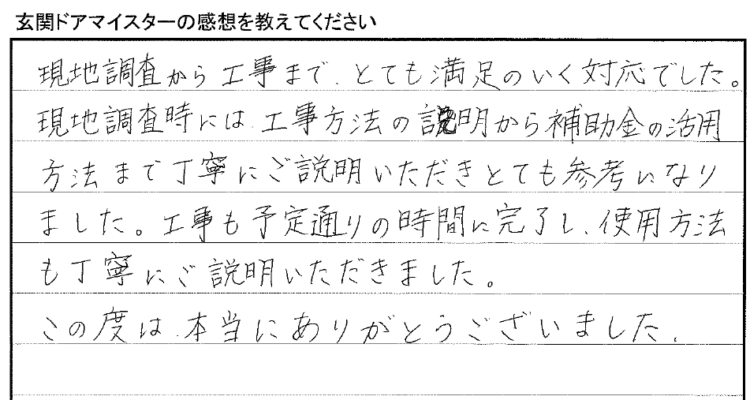 玄関ドアマイスターの感想を教えてください
現地調査から工事まで、とても満足のいく対応でした。
現地調査時には、工事方法の説明から補助金の活用
方法まで丁寧にご説明いただきとても参考になり
ました。工事も予定通りの時間に完了し、使用方法
も丁寧にご説明いただきました。
この度は、本当にありがとうございました.